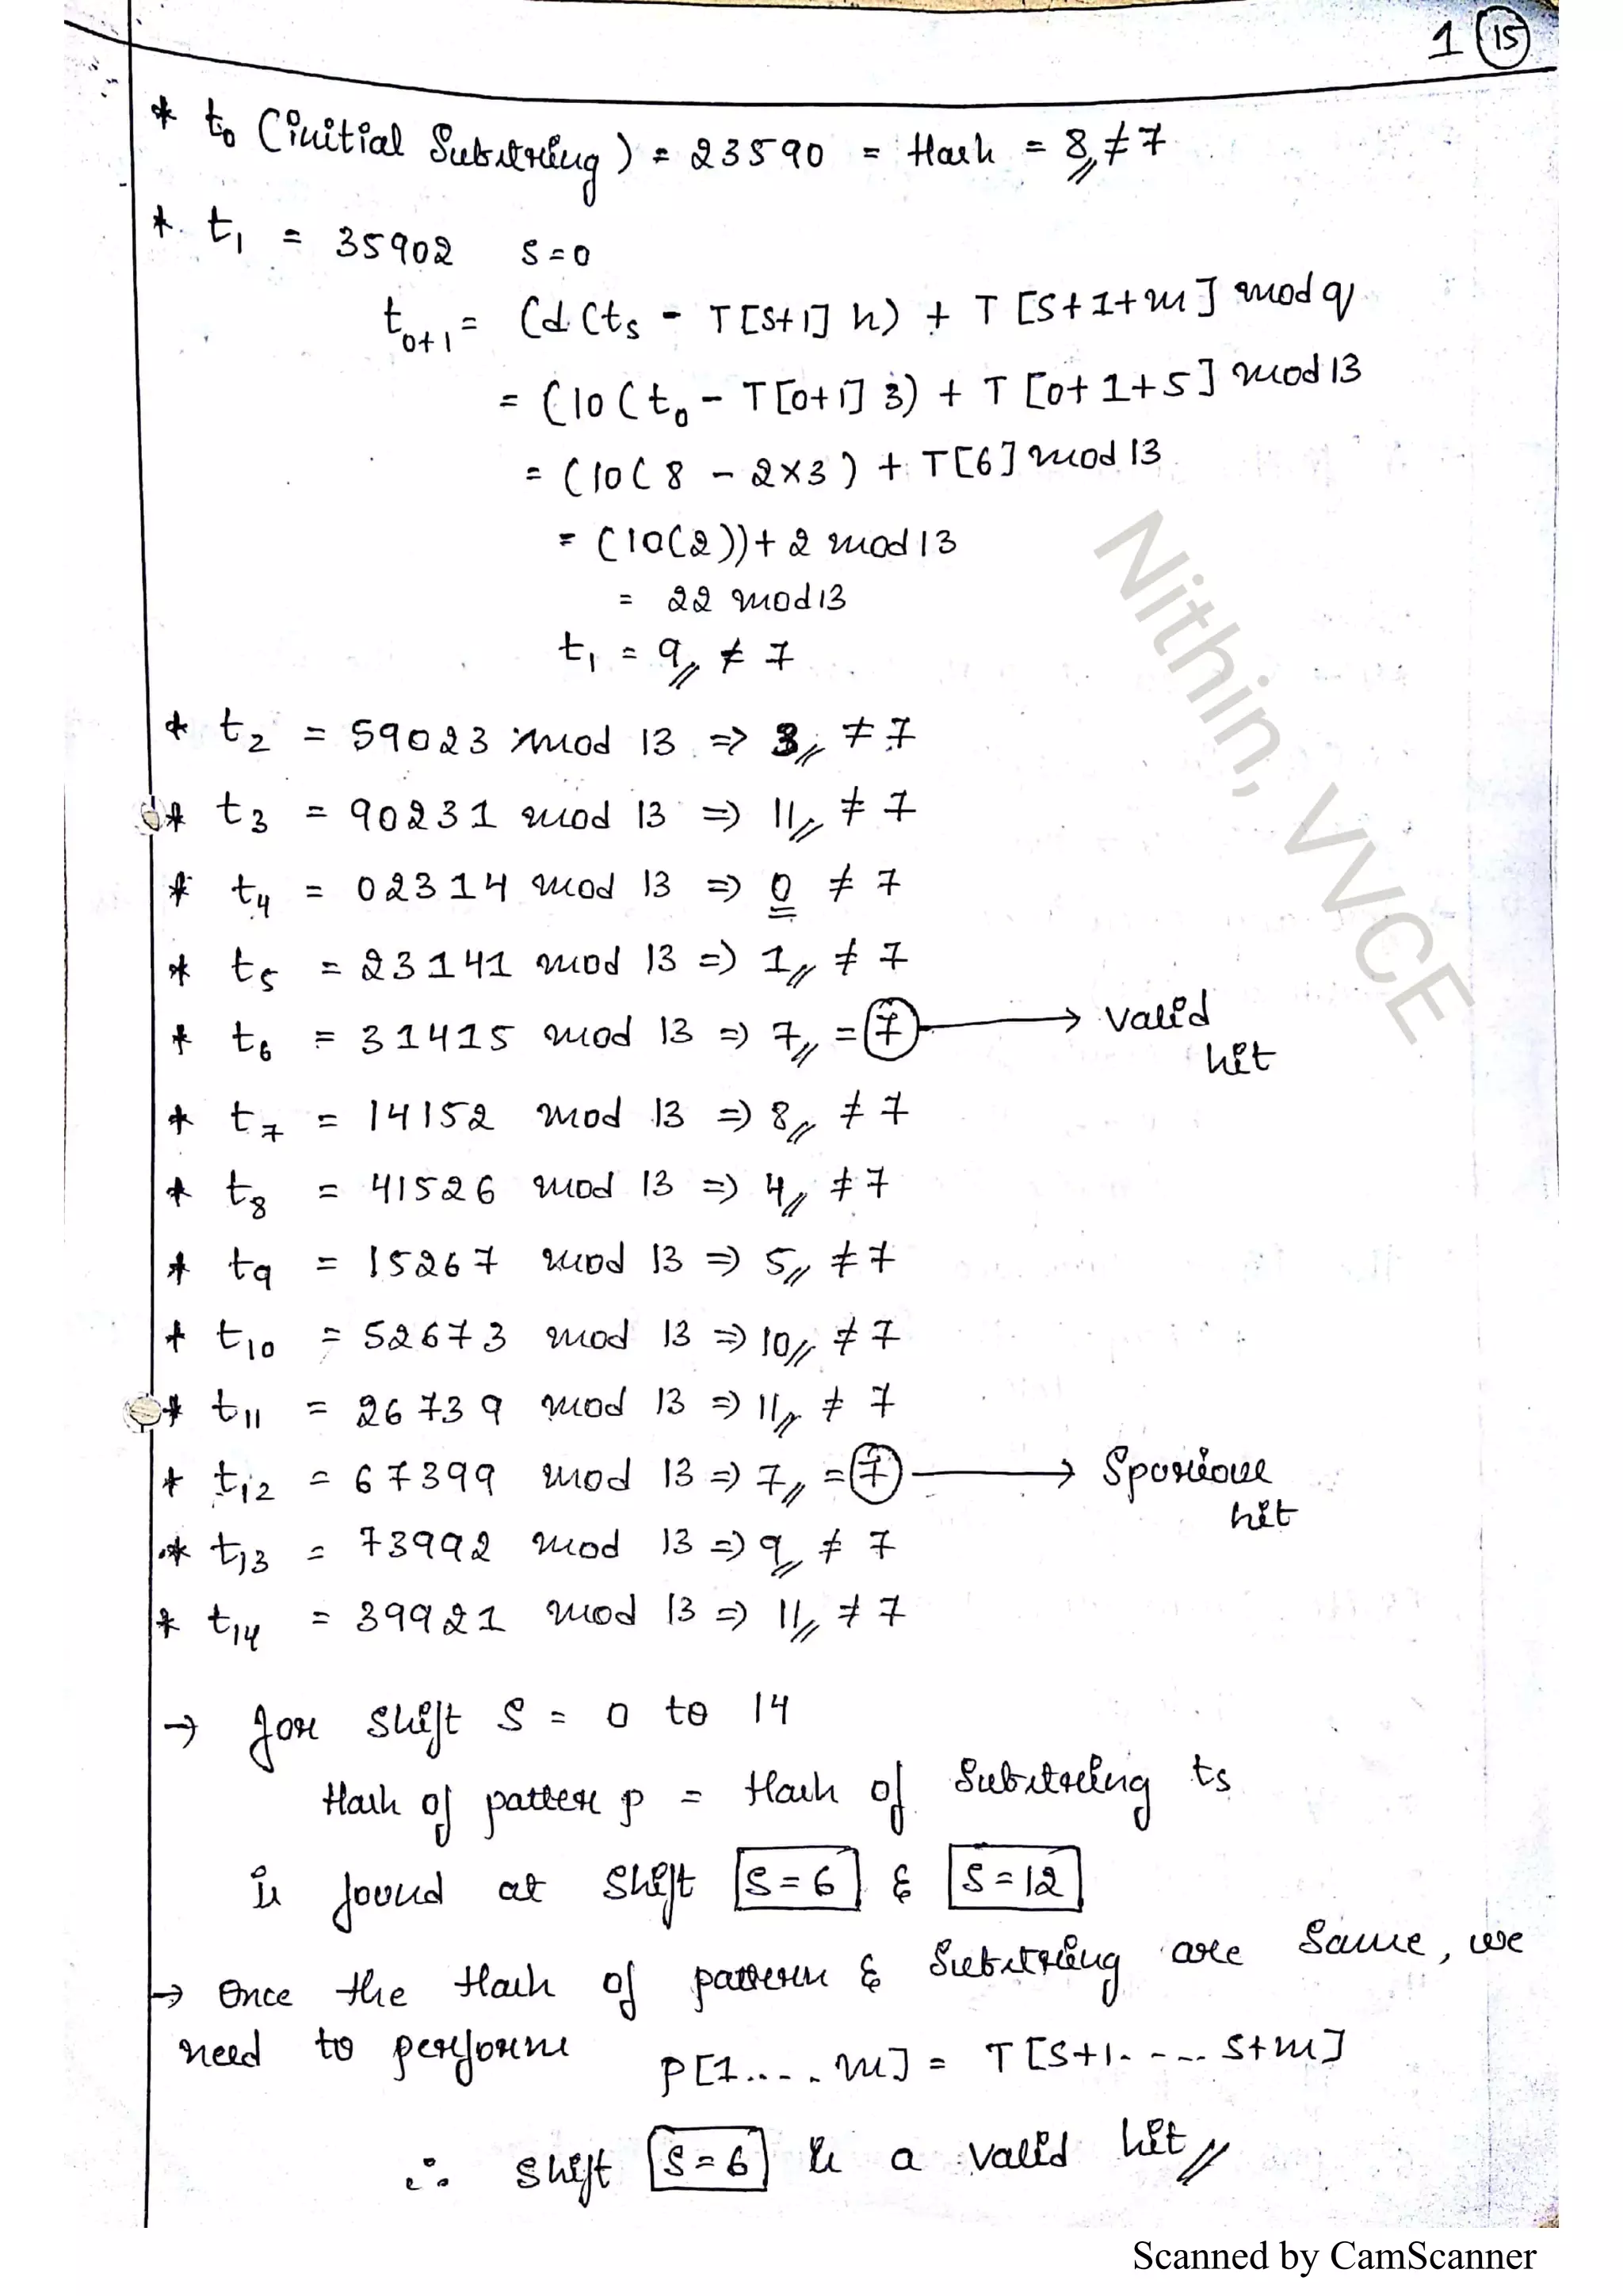 1 15
* t0 (initial Substring) = 23590 = Hash = 8 ≠ 7
* t1 = 35902 S=0
t0+1 = (d(ts - T[S+1] h) + T[S+1+m] mod q
= (10(t0 - T[0+1] 3) + T[0+1+5] mod 13
= (10(8 - 2×3) + T[6] mod 13
= (10(2)) + 2 mod 13
= 22 mod 13
t1 = 9 ≠ 7
* t2 = 59023 mod 13 => 3 ≠ 7
* t3 = 90231 mod 13 => 11 ≠ 7
* t4 = 02314 mod 13 => 0 ≠ 7
* t5 = 23141 mod 13 => 1 ≠ 7
* t6 = 31415 mod 13 => 7 = 7 → valid
hit
* t7 = 14152 mod 13 => 8 ≠ 7
* t8 = 41526 mod 13 => 4 ≠ 7
* t9 = 15267 mod 13 => 5 ≠ 7
* t10 = 52673 mod 13 => 10 ≠ 7
* t11 = 26739 mod 13 => 11 ≠ 7
* t12 = 67399 mod 13 => 7 = 7 → Sporious
hit
* t13 = 73992 mod 13 => 9 ≠ 7
* t14 = 39921 mod 13 => 11 ≠ 7
→ for shift S = 0 to 14
Hash of patter p = Hash of Substring ts
is found at shift S=6 & S=12
→ Once the Hash of pattern & Substring are Same, we
need to perform P[1....m] = T[S+1.---.. S+m]
∴ shift S=6 is a valid hit
Nithin, VVCE
Scanned by CamScanner